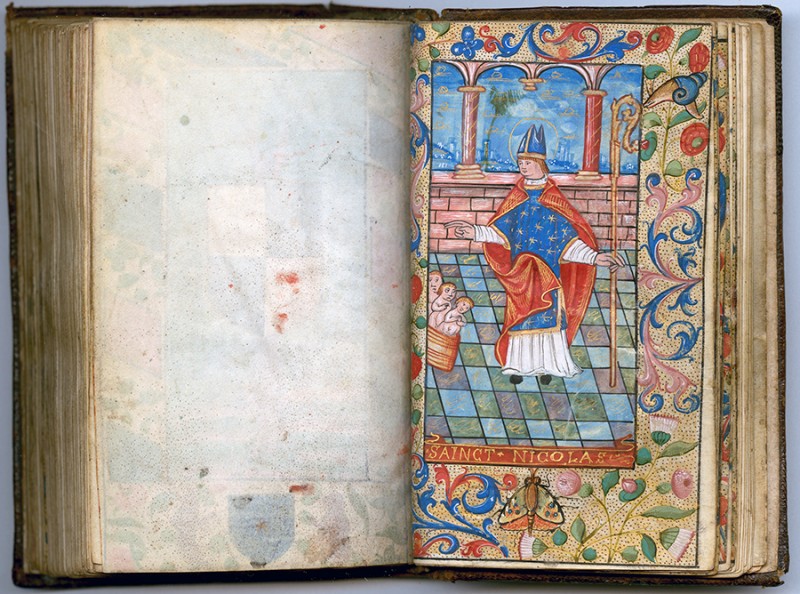 SAINCT · NICOLAS